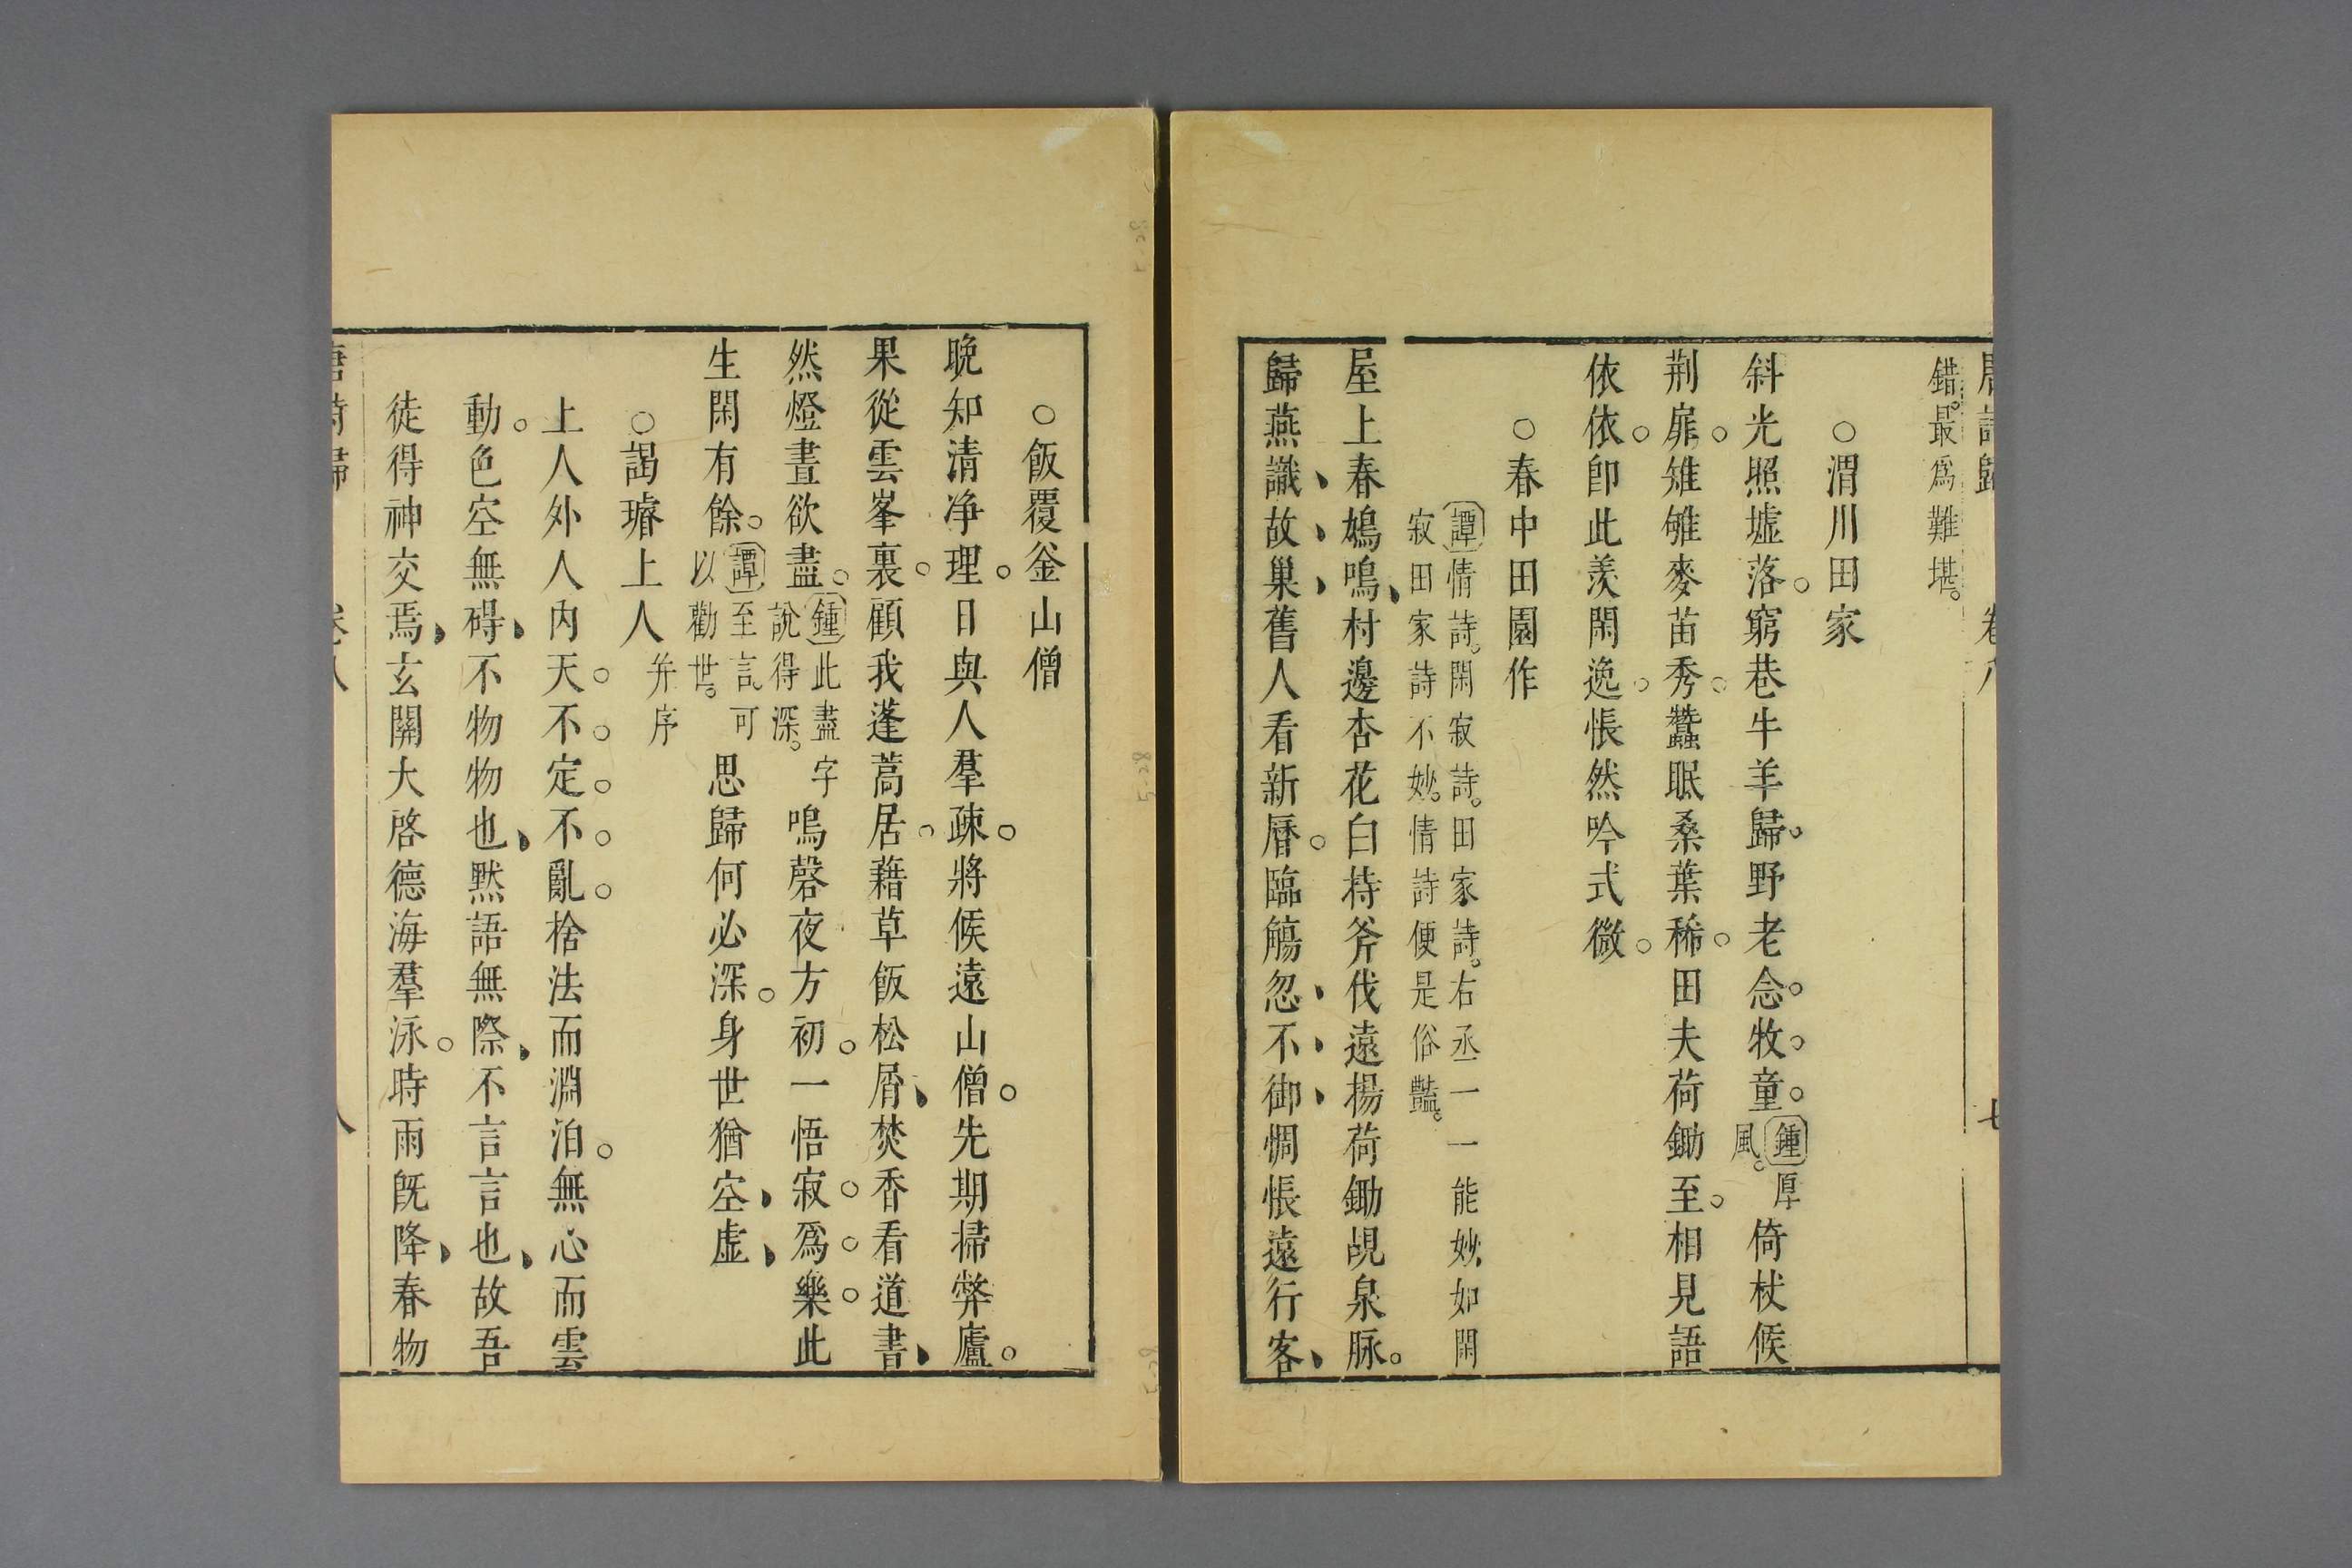 錯。最爲難堪。
○渭川田家
斜光照墟落。窮巷牛羊歸。野老念牧童。鍾厚風。倚杖候
荆扉。雉雊麥苗秀。蠶眠桑葉稀。田夫荷鋤至。相見語
依依。卽此羨閑逸。悵然吟式微。
○春中田園作
譚情詩。閑寂詩。田家詩。右丞一一能妙。如閑
寂田家詩不妙。情詩便是俗豔。
屋上春鳩鳴、村邊杏花白持斧伐遠揚荷鋤覘泉脉。
歸燕識故巢舊人看新曆。臨觴忽不御惆悵遠行客、
唐詩歸 卷八 七
○飯覆釜山僧
晚知清净理。日與人羣疎。將候遠山僧。先期掃弊廬。
果從雲峯裏。顧我蓬蒿居。藉草飯松屑、焚香看道書、
然燈晝欲盡。鍾此盡字說得深。鳴磬夜方初。一悟寂爲樂此
生閑有餘。譚至言可以勸世。思歸何必深。身世猶空虛、
○謁璿上人并序
上人外人内天不定不亂捨法而淵泊。無心而雲
動。色空無碍、不物物也、默語無際、不言言也、故吾
徒得神交焉、玄關大啓德海羣泳。時雨旣降、春物
唐詩歸 卷八 八